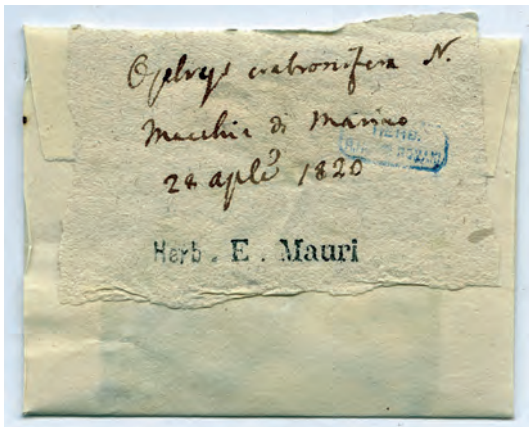 Ophrys crabronifera N.
Macchia di Marino
28 aple 1820
HERB.
Herb. E. Mauri